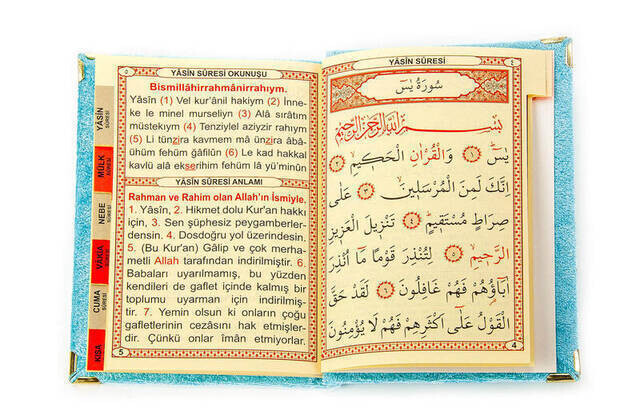 YÂSİN SÛRESİ
٤
سُورَةُ يٰسٓ
بِسْمِ اللّٰهِ الرَّحْمٰنِ الرَّحِيمِ
يٰسٓ ﴿١﴾ وَالْقُرْاٰنِ الْحَكِيمِ ﴿٢﴾
اِنَّكَ لَمِنَ الْمُرْسَلِينَ ﴿٣﴾ عَلٰى
صِرَاطٍ مُسْتَقِيمٍ ﴿٤﴾ تَنْزِيلَ الْعَزِيزِ
الرَّحِيمِ ﴿٥﴾ لِتُنْذِرَ قَوْمًا مَٓا اُنْذِرَ
اٰبَٓاؤُهُمْ فَهُمْ غَافِلُونَ ﴿٦﴾ لَقَدْ حَقَّ
الْقَوْلُ عَلٰٓى اَكْثَرِهِمْ فَهُمْ لَا يُؤْمِنُونَ
4
٥
YÂSİN SÛRESİ OKUNUŞU
Bismillâhirrahmânirrahıym.
Yâsîn (1) Vel kur'ânil hakiym (2) İnne-
ke le minel murseliyn (3) Alâ sıratım
müstekıym (4) Tenziylel aziyzir rahıym
(5) Li tünzira kavmem mâ ünzira âbâ-
ühüm fehüm ğâfilûn (6) Le kad hakkal
kavlü alâ ekserihim fehüm lâ yü'minûn
YÂSİN SÛRESİ ANLAMI
Rahman ve Rahim olan Allah'ın İsmiyle.
1. Yâsîn, 2. Hikmet dolu Kur'an hakkı
için, 3. Sen şüphesiz peygamberler-
densin. 4. Dosdoğru yol üzerindesin.
5. (Bu Kur'an) Gâlip ve çok merha-
metli Allah tarafından indirilmiştir. 6.
Babaları uyarılmamış, bu yüzden
kendileri de gaflet içinde kalmış bir
toplumu uyarman için indirilmiş-
tir. 7. Yemin olsun ki onların çoğu
gafletlerinin cezâsını hak etmişler-
dir. Çünkü onlar îmân etmiyorlar.
5
YÂSİN
SÛRESİ
MÜLK
SÛRESİ
NEBE
SÛRESİ
VÂKIA
SÛRESİ
CUMA
SÛRESİ
KISA